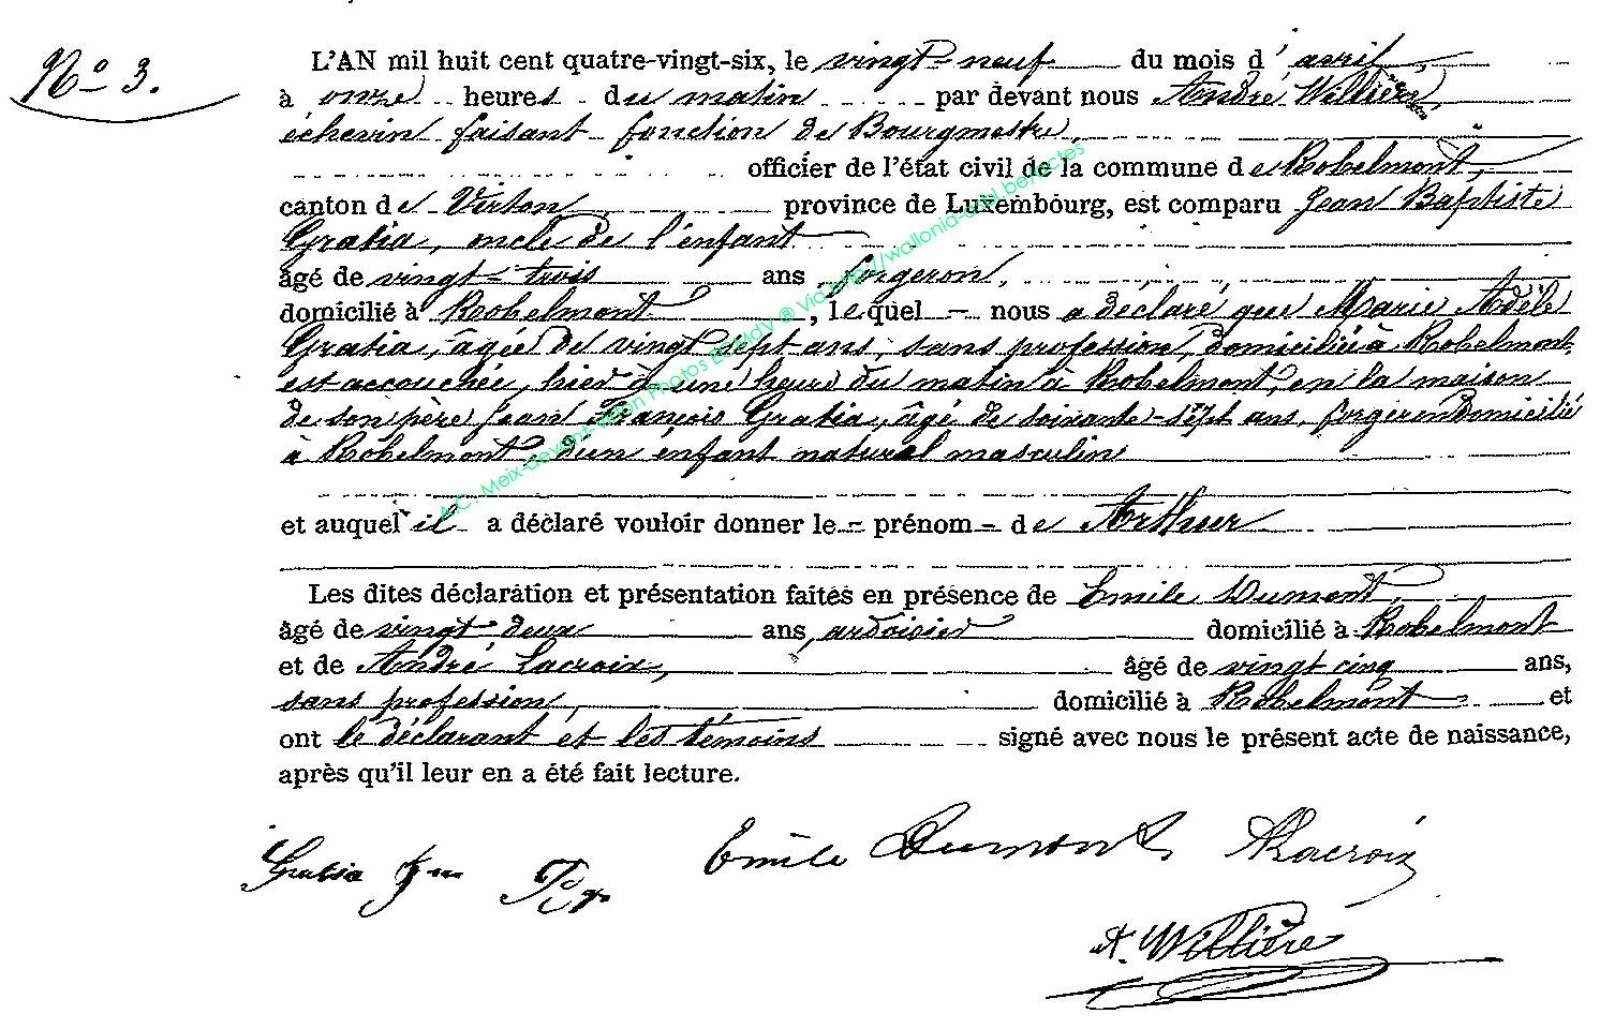 N° 3.
L'AN mil huit cent quatre-vingt-six, le vingt-neuf du mois d'avril,
à onze heures du matin par devant nous André Willière,
échevin faisant fonction de Bourgmestre,
officier de l'état civil de la commune de Robelmont,
canton de Virton, province de Luxembourg, est comparu Jean Baptiste
Gratia, oncle de l'enfant
âgé de vingt-trois ans, forgeron,
domicilié à Robelmont, lequel nous a déclaré que Marie Adèle
Gratia, âgée de vingt sept ans, sans profession, domiciliée à Robelmont,
est accouchée, hier à une heure du matin à Robelmont, en la maison
de son père Jean François Gratia, âgé de soixante-sept ans, forgeron domicilié
à Robelmont, d'un enfant naturel masculin
et auquel il a déclaré vouloir donner le prénom de Arthur
Les dites déclaration et présentation faites en présence de Emile Dumont,
âgé de vingt-deux ans, ardoisier domicilié à Robelmont
et de André Lacroix, âgé de vingt cinq ans,
sans profession, domicilié à Robelmont et
ont le déclarant et les témoins signé avec nous le présent acte de naissance,
après qu'il leur en a été fait lecture.
Gratia Emile Dumont ALacroix
A. Willière
A.C. Meix-devant-Virton Photos © Via http://wallonia-asbl.be/actes